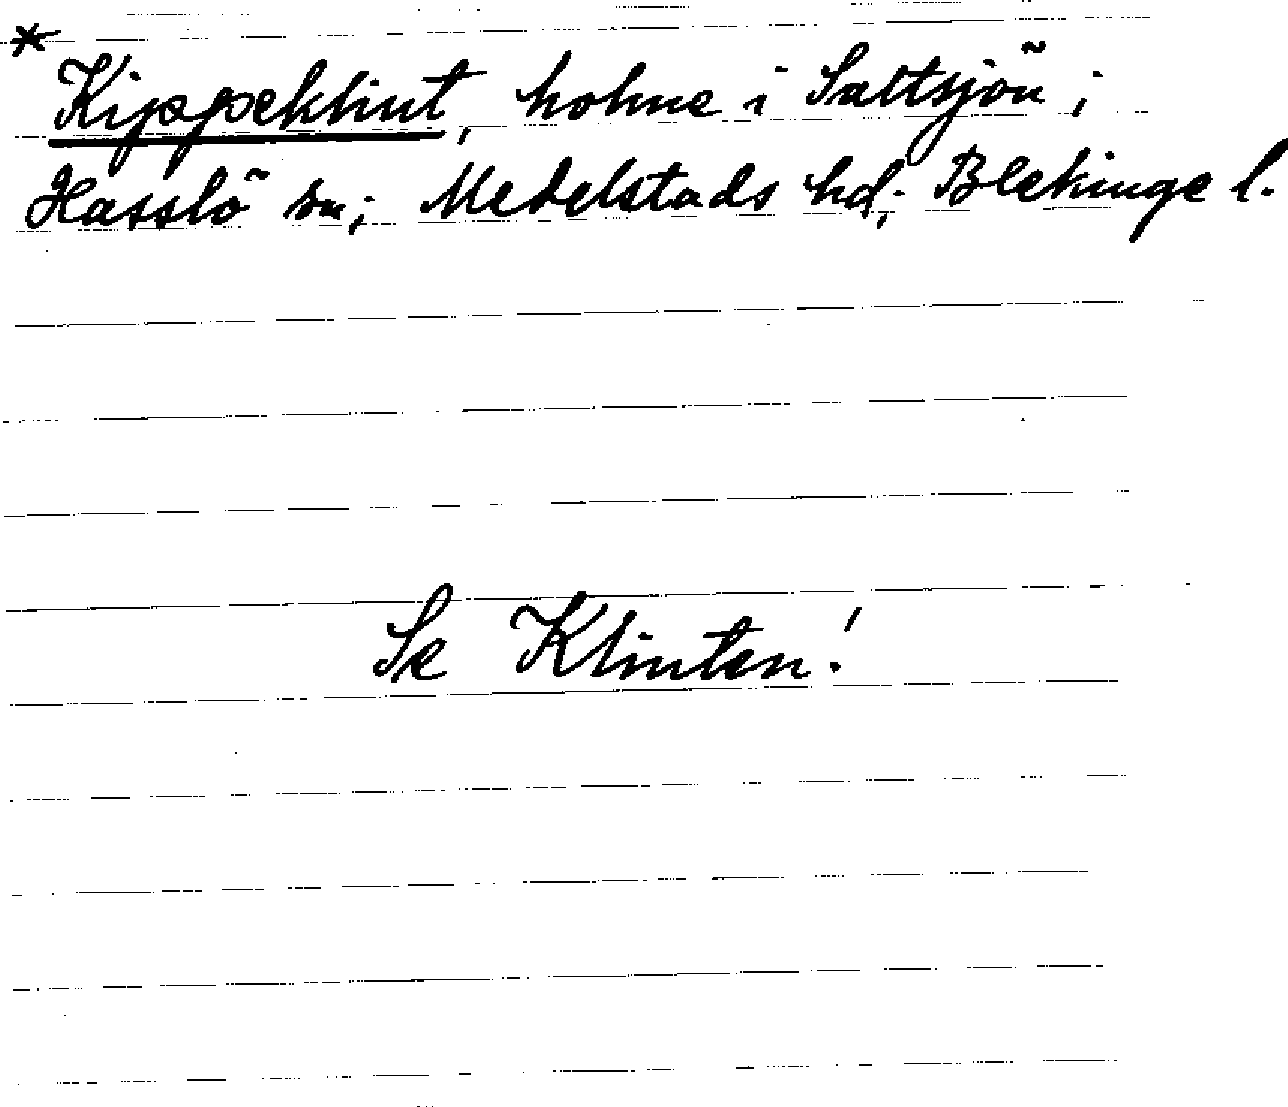 * Kippeklint, holme i Saltsjön;
Hasslö sn; Medelstads hd; Blekinge l.
Se Klinten!